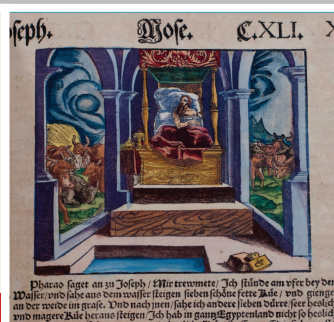 oseph. Mose. C.XLI. X
Pharao saget an zu Joseph / Mir trewmete / Ich stünde am vfer bey dem
Wasser / vnd sahe aus dem wasser steigen sieben schöne fette Küe / vnd giengen
an der weide im grase. Vnd nach jnen / sahe ich andere sieben dürre / seer heslich
vnd magere Küe heraus steigen / Ich hab in gantz Egyptenland nicht so heslich